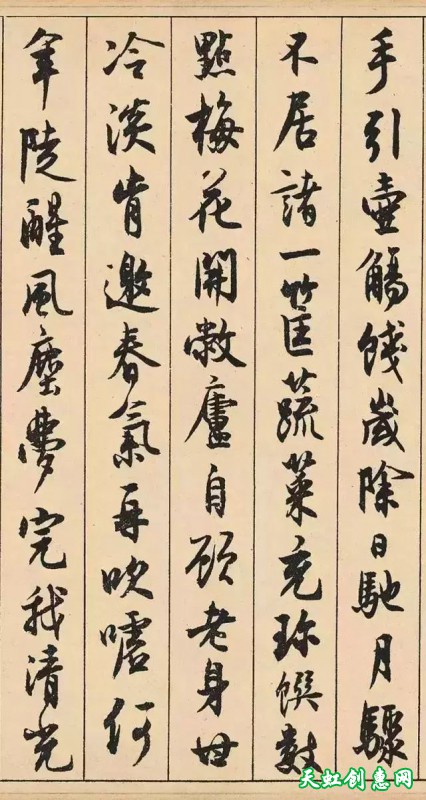 手引壺觴餞歲除日馳月驟
不居諸一筐蔬菜充珍饌數
點梅花開敝廬自顧老身甘
冷淡肯邀春氣再吹噓何
年陡醒風塵夢完我清光
天虹创惠网